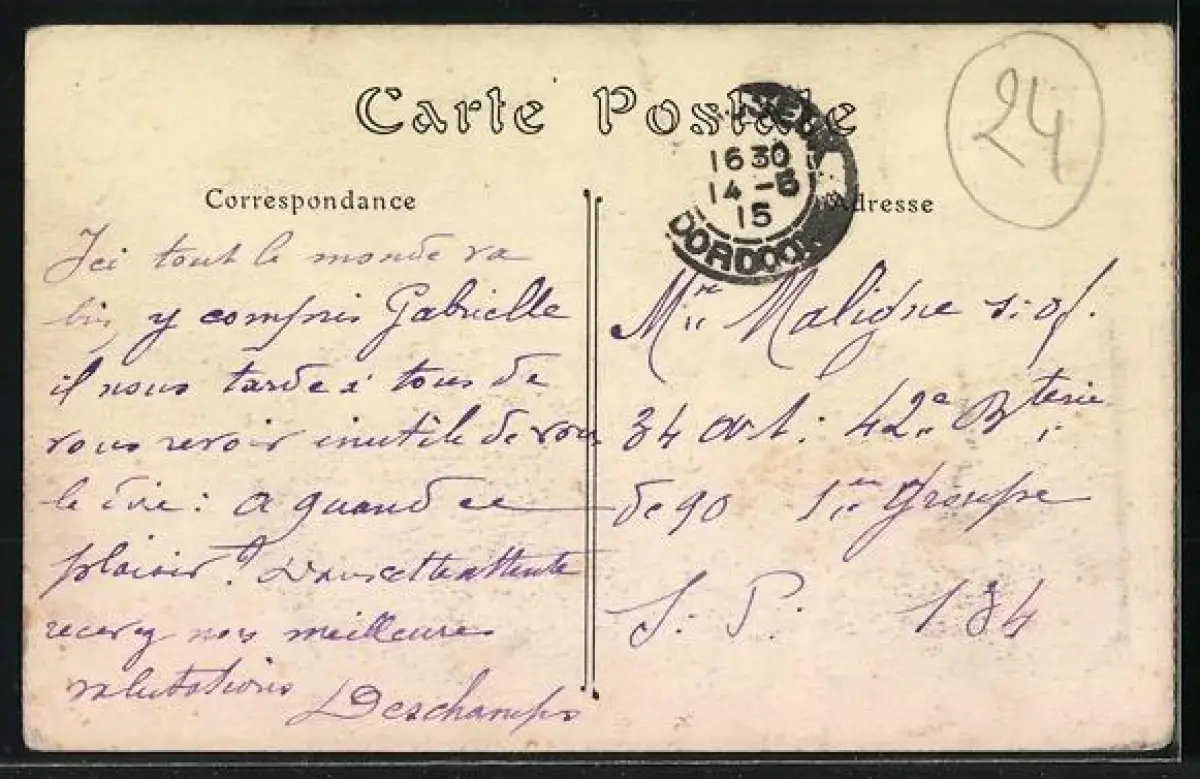 Carte Postale
24
16 30
14 -5
15
DORDOGNE
Correspondance
Adresse
Ici tout le monde va
bien y compris Gabrielle
il nous tarde à tous de
vous revoir inutile de vous
le dire: a quand ce
plaisir? Dans cette attente
recevez nos meilleures
salutations Deschamps
Mr Maligne s: of.
34 art: 42e Bterie
de 90 1er groupe
S. P. 134